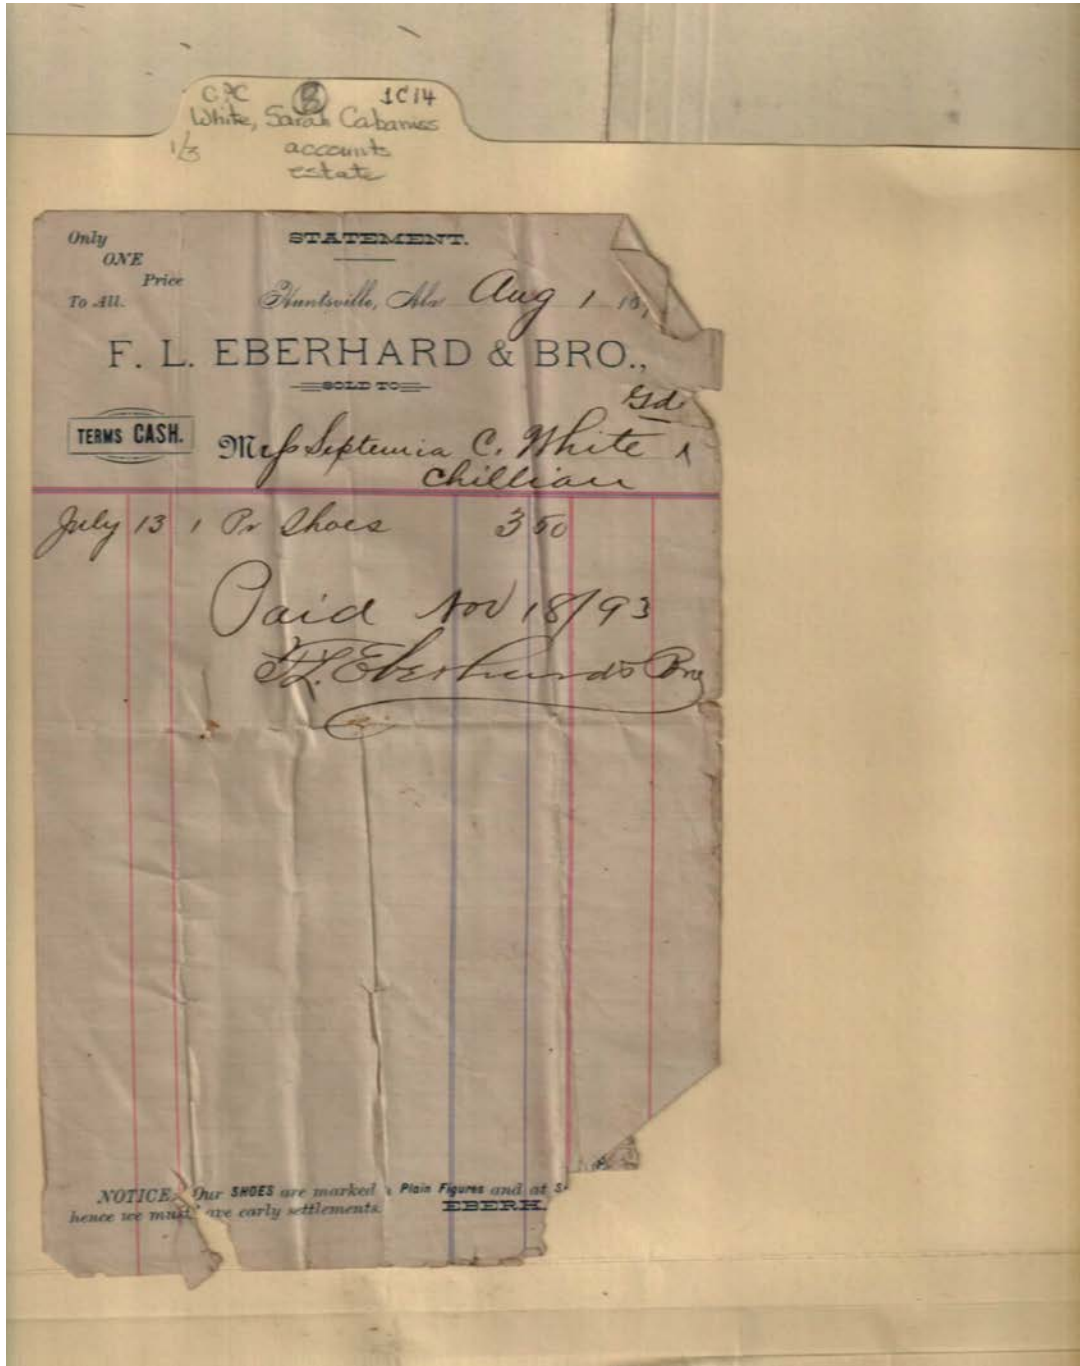 C.PC (B) 1C14
White, Sarah Cabaniss
1/3 accounts
estate
Only
ONE
Price
To All.
STATEMENT.
Huntsville, Ala Aug 1 18
F. L. EBERHARD & BRO.,
SOLD TO
Gd
TERMS CASH.
Mrs Septemia C. White
chillian
July 13 1 Pr Shoes 3 50
Paid Nov 18/93
F.L. Eberhard & Bro
NOTICE. Our SHOES are marked Plain Figures and at
hence we must are early settlements. EBERH.